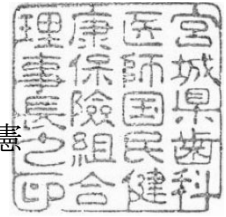 宮城県歯科
医師国民健
康保険組合
理事長之印
憲